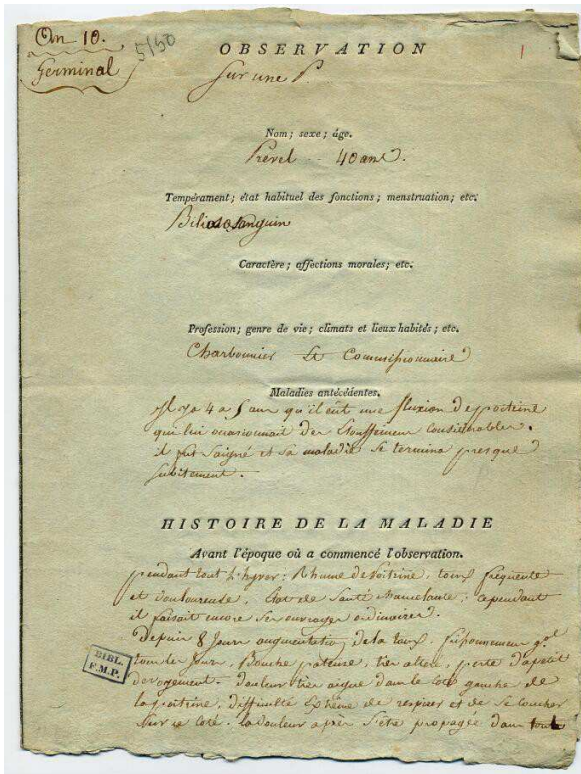 An 10.
Germinal
5/50
1
OBSERVATION
sur une P.
Nom; sexe; âge.
Prevel -- 40 ans.
Tempérament; état habituel des fonctions; menstruation; etc.
Bilioso Sanguin
Caractère; affections morales; etc.
Profession; genre de vie; climats et lieux habités; etc.
Charbonnier et Commissionnaire
Maladies antécédentes.
il y a 4 a 5 ans qu'il eût une fluxion de poitrine
qui lui occasionnait des etouffemens considérables.
il fut saigné et sa maladie se termina presque
subitement.
HISTOIRE DE LA MALADIE
Avant l'époque où a commencé l'observation.
pendant tout l'hyver; Rhume de Poitrine, toux fréquente
et douloureuse, état de santé chancelante; cependant
il faisait encore ses ouvrages ordinaires.
Depuis 8 Jours augmentation de la toux, frissonnemens
tous les Jours, Bouche pateuse, très altéré, perte d'apétit
devoyement. douleur très aigue dans le coté gauche de
la poitrine, difficulté extrême de respirer et de se coucher
sur ce coté. la douleur après s'être propagée dans tout
BIBL.
F.M.P.